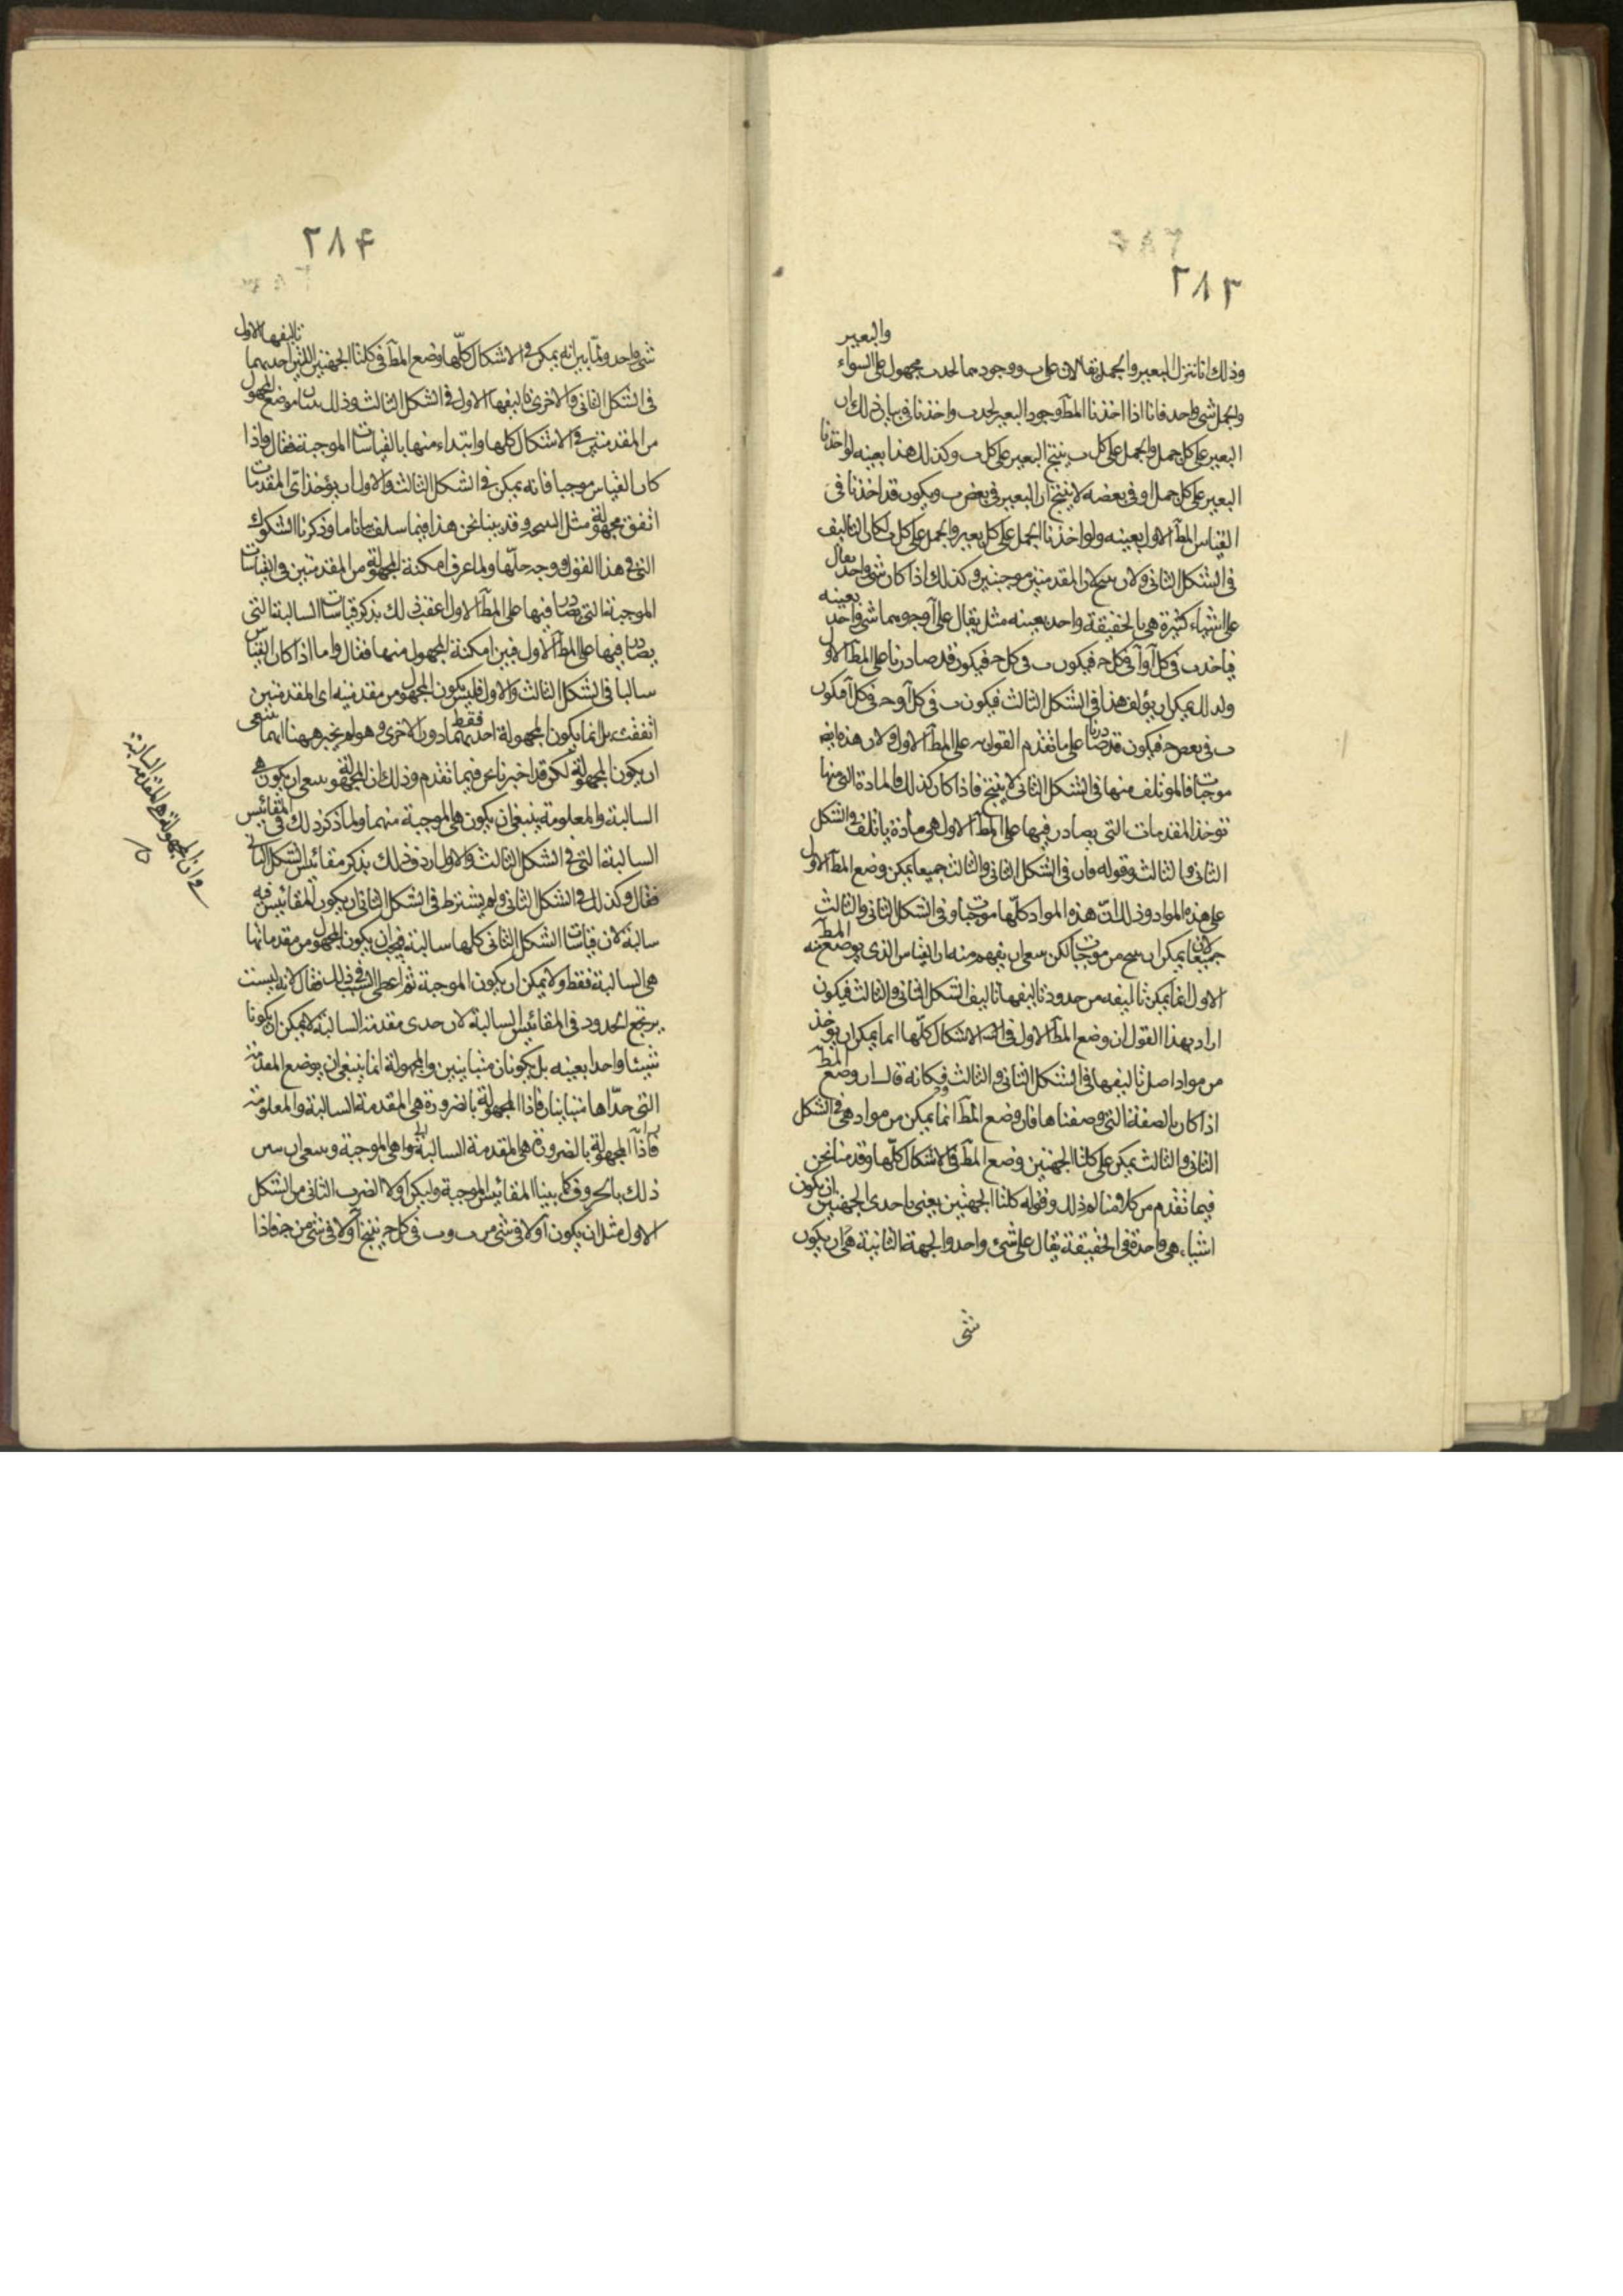 ٢٨٣
والبعير
وذلك انا ننزل البعير والجمل يقالان على ب ووجودهما لحد ب مجهول على السواء
والجمل شى واحد فانا اذا اخذنا المطَ وجود البعير لحد ب واخذنا فى بيان ذلك ان
البعير على كل جمل والجمل على كل ب ينتج البعير على كل ب وكذلك هذا بعينه لو اخذنا
البعير على كل جمل او فى بعضه لا ينتج ان البعير فى بعض ب ويكون قد اخذنا فى
القياس المطَ الاول بعينه ولو اخذنا الجمل على كل بعير والجمل على كل ب لكان التاليف
فى الشكل الثانى ولان المقدمتين موجبتين وكذلك اذا كان شى واحد يقال
على اشياء كثيرة هى بالحقيقة واحد بعينه مثل يقال على آ وجـ وهما شى واحد بعينه
فياخذ ب فى كل آ وآ فى كل جـ فيكون ب فى كل جـ فيكون قد صادرنا على المطَ الاول
ولذلك يمكن ان يؤلف هذا فى الشكل الثالث فيكون ب فى كل آ وجـ فى كل آ فيكون
ب فى بعض جـ فيكون قد صادرنا على ما تقدم القول به على المطَ الاول ولان هذه ايضا
موجبات فالموتلف منها فى الشكل الثانى لا ينتج فاذا كان كذلك فالمادة التى منها
توخذ المقدمات التى يصادر فيها على المطَ الاول هى مادة ياتلف فى الشكل
الثانى والثالث وقوله وان فى الشكل الثانى والثالث جميعا يمكن وضع المطَ الاول
على هذه المواد وذلك ان هذه المواد كلّها موجبات وفى الشكل الثانى والثالث
جميعا لا يمكن ان ينتج من موجبات لكن ينبغى ان يفهم منه ان القياس الذى يوضع فيه المطَ
الاول انما يمكن تاليفه من حدود تاليفها تاليف الشكل الثانى والثالث فيكون
اراد بهذا القول ان وضع المطَ الاول فى الاشكال كلّها انما يمكن ان يوخذ
من مواد اصل تاليفها فى الشكل الثانى والثالث فكانه قال ان وضع المطَ
اذا كان بالصفة التى وصفناها فان وضع المطَ انما يمكن من مواد هى فى الشكل
الثانى والثالث يمكن على كلتا الجهتين وضع المطَ فى الاشكال كلّها وقد منا نحن
فيما تقدم من كلامنا لوذلك وقوله كلتا الجهتين يعنى باحدى الجهتين ان يكون
اشياء هى واحدة فى الحقيقة يقال على شىء واحد والجهة الثانية هى ان يكون
شى
٢٨٤
شى واحد ولما بين انه يمكن فى الاشكال كلّها وضع المطَ فى كلتا الجهتين اللتين احديهما تاليفها الاول
فى الشكل الثانى والاخرى تاليفها الاول فى الشكل الثالث وذلك بينا موضع المجهول
من المقدمتين فى الاشكال كلها وابتداء منها بالقياسات الموجبة فقال واذا
كان القياس موجبا فانه يمكن فى الشكل الثالث والاول ان يؤخذ اىّ المقدمات
اتفق مجهولة وقد بينا نحن هذا فيما سلف بيانا ما وذكرنا الشكوك
التى فى هذا القول ووجه حلّها ولما عرف امكنة المجهولة من المقدمتين فى القياسات
الموجبة التى يصادر فيها على المطَ الاول اعقب ذلك بذكر قياسات السالبة التى
يصادر فيها على المطَ الاول فبين امكنة المجهول منها فقال واما اذا كان القياس
سالبا فى الشكل الثالث والاول فليس يكون المجهول من مقدمتيه اى المقدمتين
اتفقت بل انما يكون المجهولة احديهما فقط دون الاخرى وهو لم يخبر ههنا ايهما ينبغى
ان يكون المجهولة لكن قد اخبرنا نحن فيما تقدم وذلك ان المجهولة ينبغى ان يكون هى
السالبة والمعلومة ينبغى ان يكون هى الموجبة منهما ولما ذكر ذلك فى المقائيس
السالبة التى فى الشكل الثالث والاول اردف ذلك بذكر مقائيس الشكل الثانى
فقال وكذلك فى الشكل الثانى ولم يشترط فى الشكل الثانى ان يكون المقائيس فيه
سالبة لان قياسات الشكل الثانى كلها سالبة فيجب ان يكون المجهول من مقدماتها
هى السالبة فقط ولا يمكن ان يكون الموجبة ثم اعطى السبب فى ذلك فقال لانه ليست
يرتجع الحدود فى المقائيس السالبة لان حدى مقدمة السالبة لا يمكن ان يكونا
شيئا واحدا بعينه بل يكونان متباينين والمجهولة انما ينبغى ان يوضع المقدمة
التى حدّاها متباينان فاذا المجهولة بالضرورة هى المقدمة السالبة والمعلومة
فاذاً المجهولة بالضرورة هى المقدمة السالبة واهى الموجبة وينبغى ان نبين
ذلك بالحروف كما بينا المقائيس الموجبة وليكن اولا الضرب الثانى من الشكل
الاول مثل ان يكون آ ولا فى شى من ب وب فى كل جـ ينتج آ ولا فى شى من جـ فاذا
وان المجهولة هى المقدمة السالبة